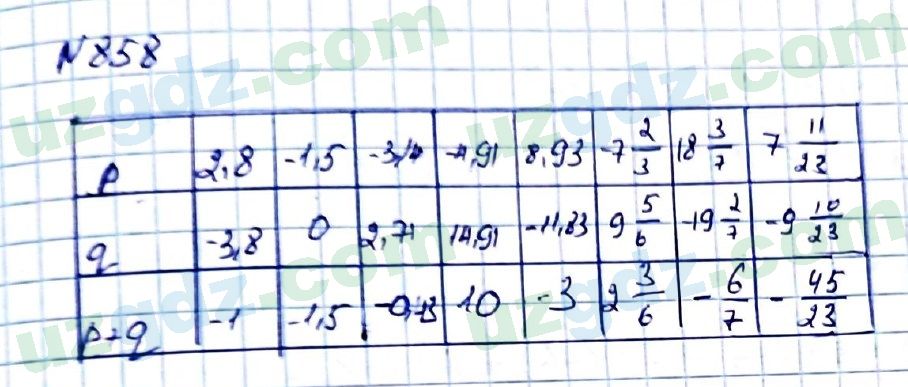 N 858
p 2,8 -1,5 -3,14 -4,91 8,93 -7 2/3 18 3/7 7 11/23
q -3,8 0 2,71 14,91 -11,93 9 5/6 -19 2/7 -9 10/23
p+q -1 -1,5 -0,43 10 -3 2 3/6 - 6/7 - 45/23
uzgdz.com